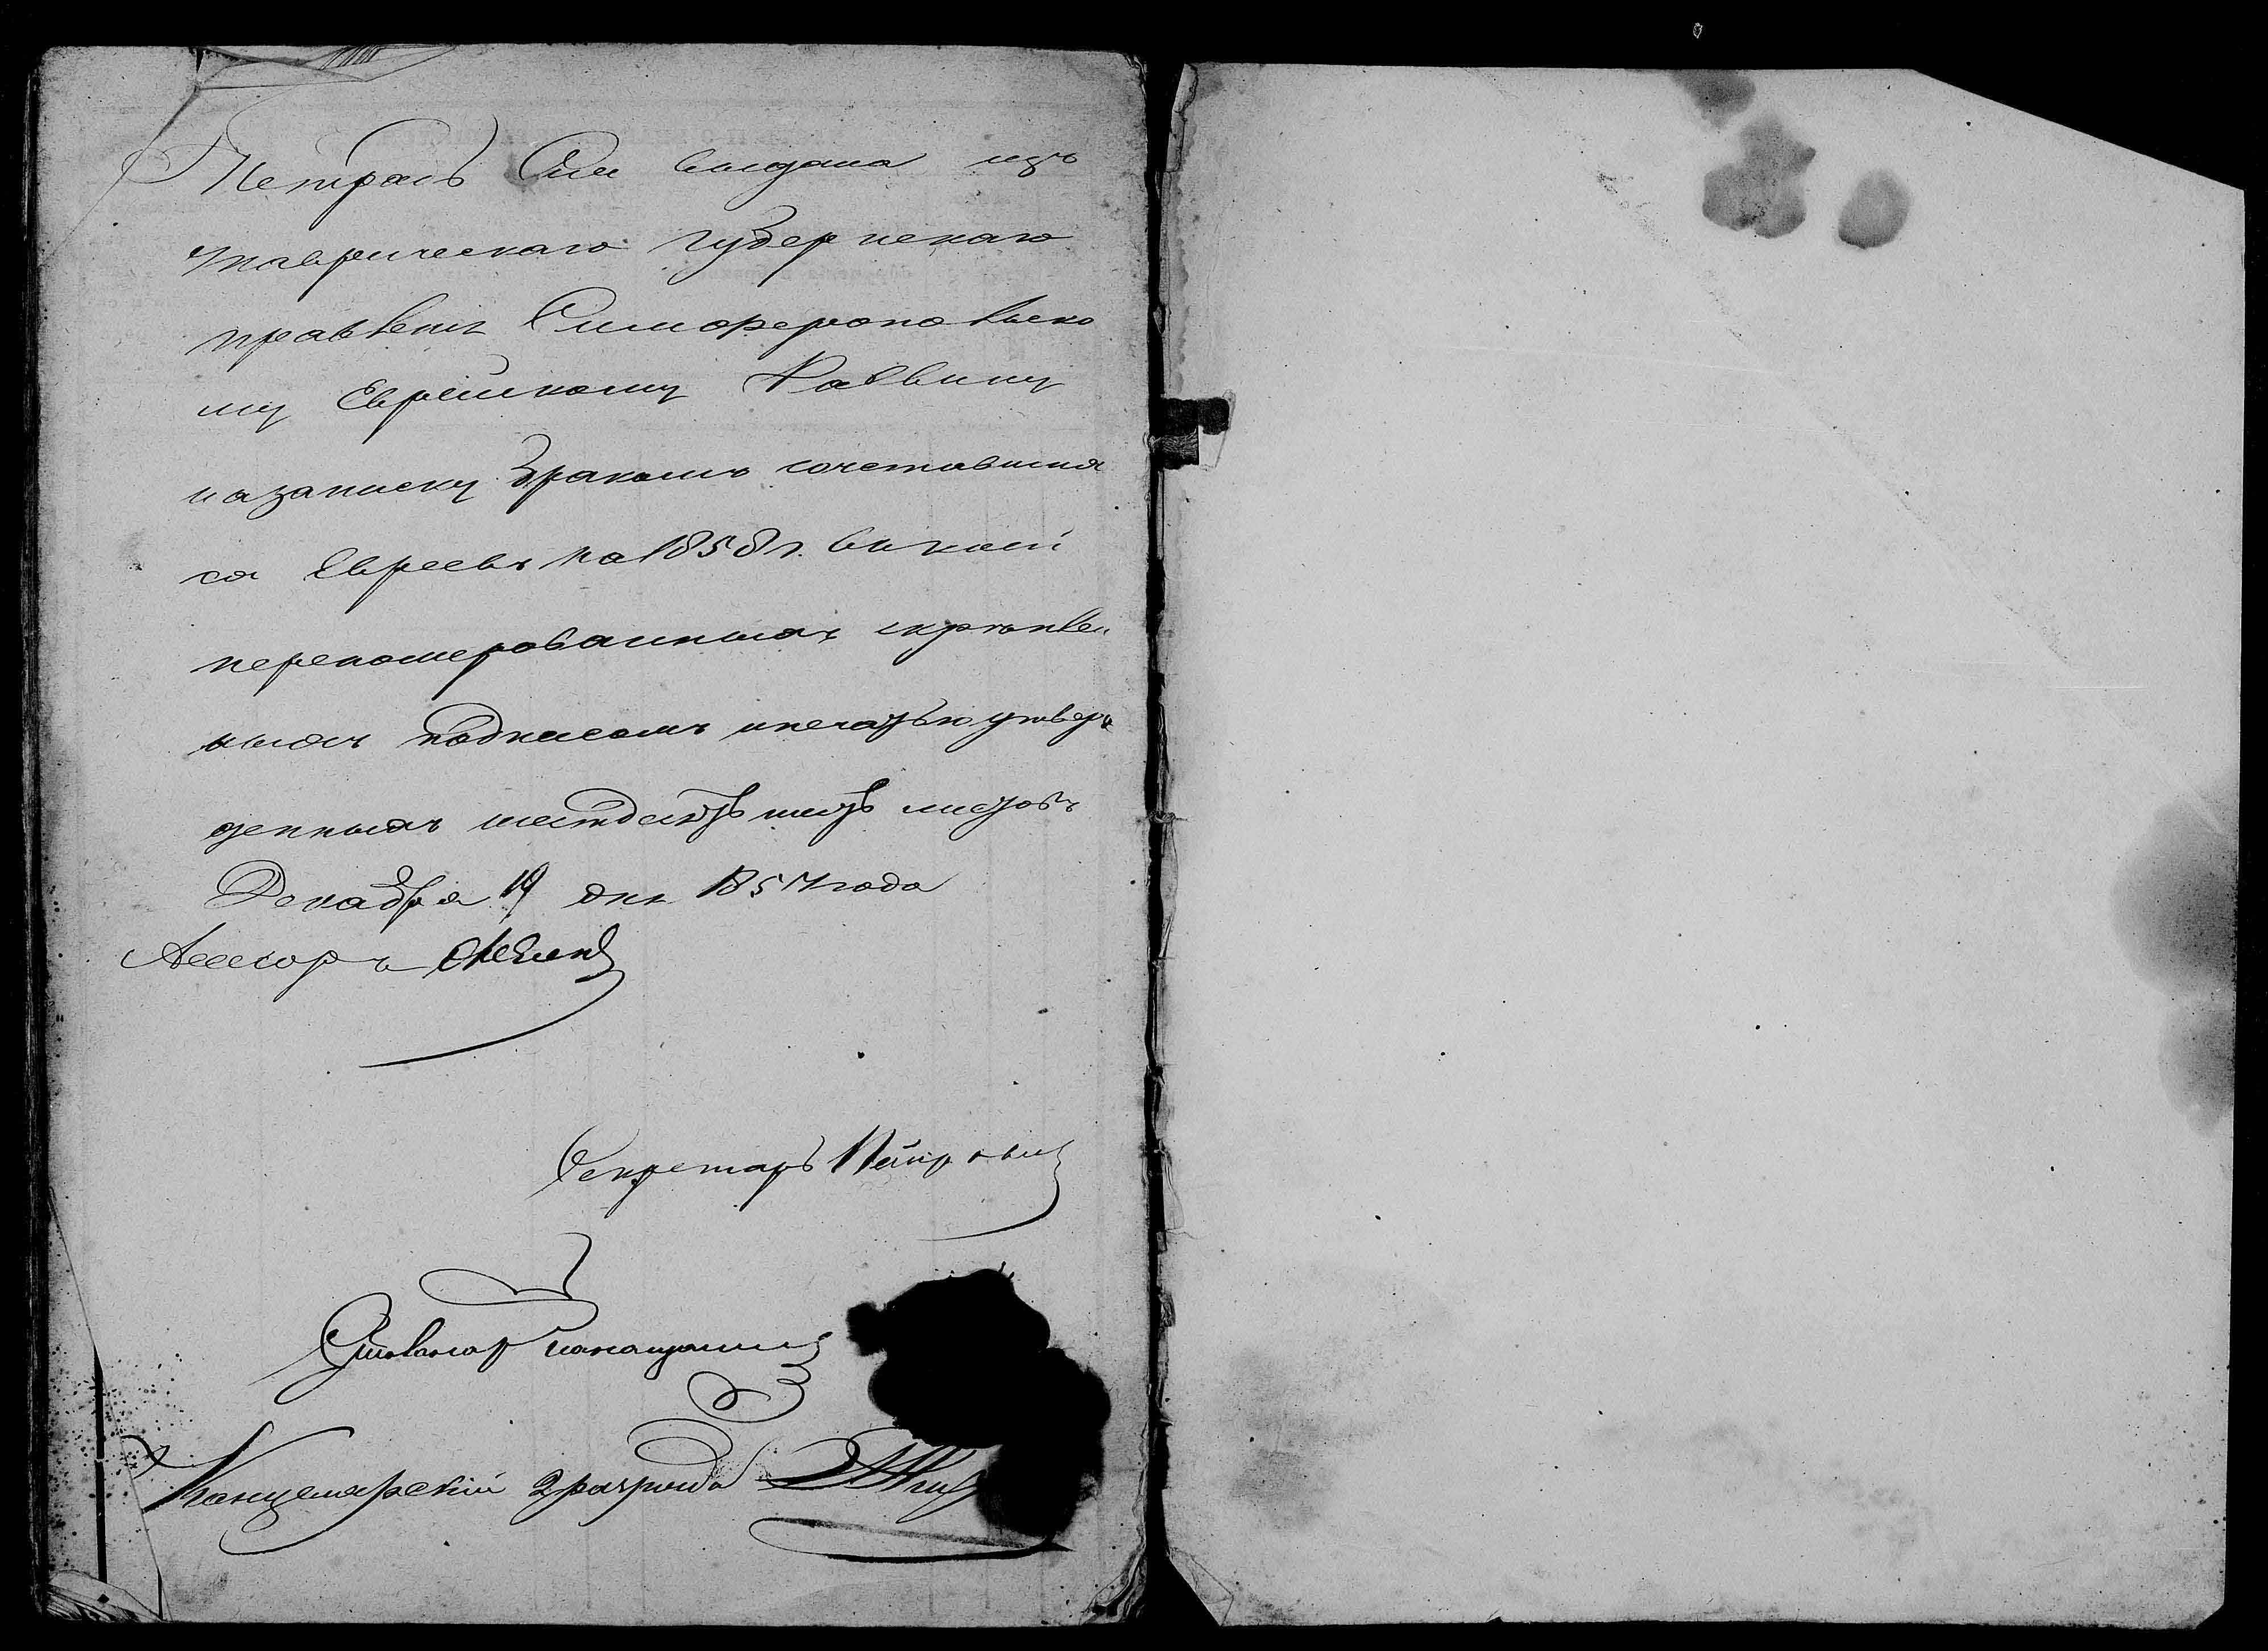 Тетрадь Сія выдана изъ
таврическаго губернскаго
правленія Симферопольско
му Еврейскому Раввину
на записку бракомъ сочетавших
ся Евреевъ на 1858 г. въ коей
перенумерованныхъ скрѣплен
ныхъ подписомъ и печатью утверж
денныхъ шестдесятъ шесть листовъ
Декабря 19 дня 1857 года
Ассесоръ
Секретарь
Столоначальникъ
Канцелярскій 2 разряда